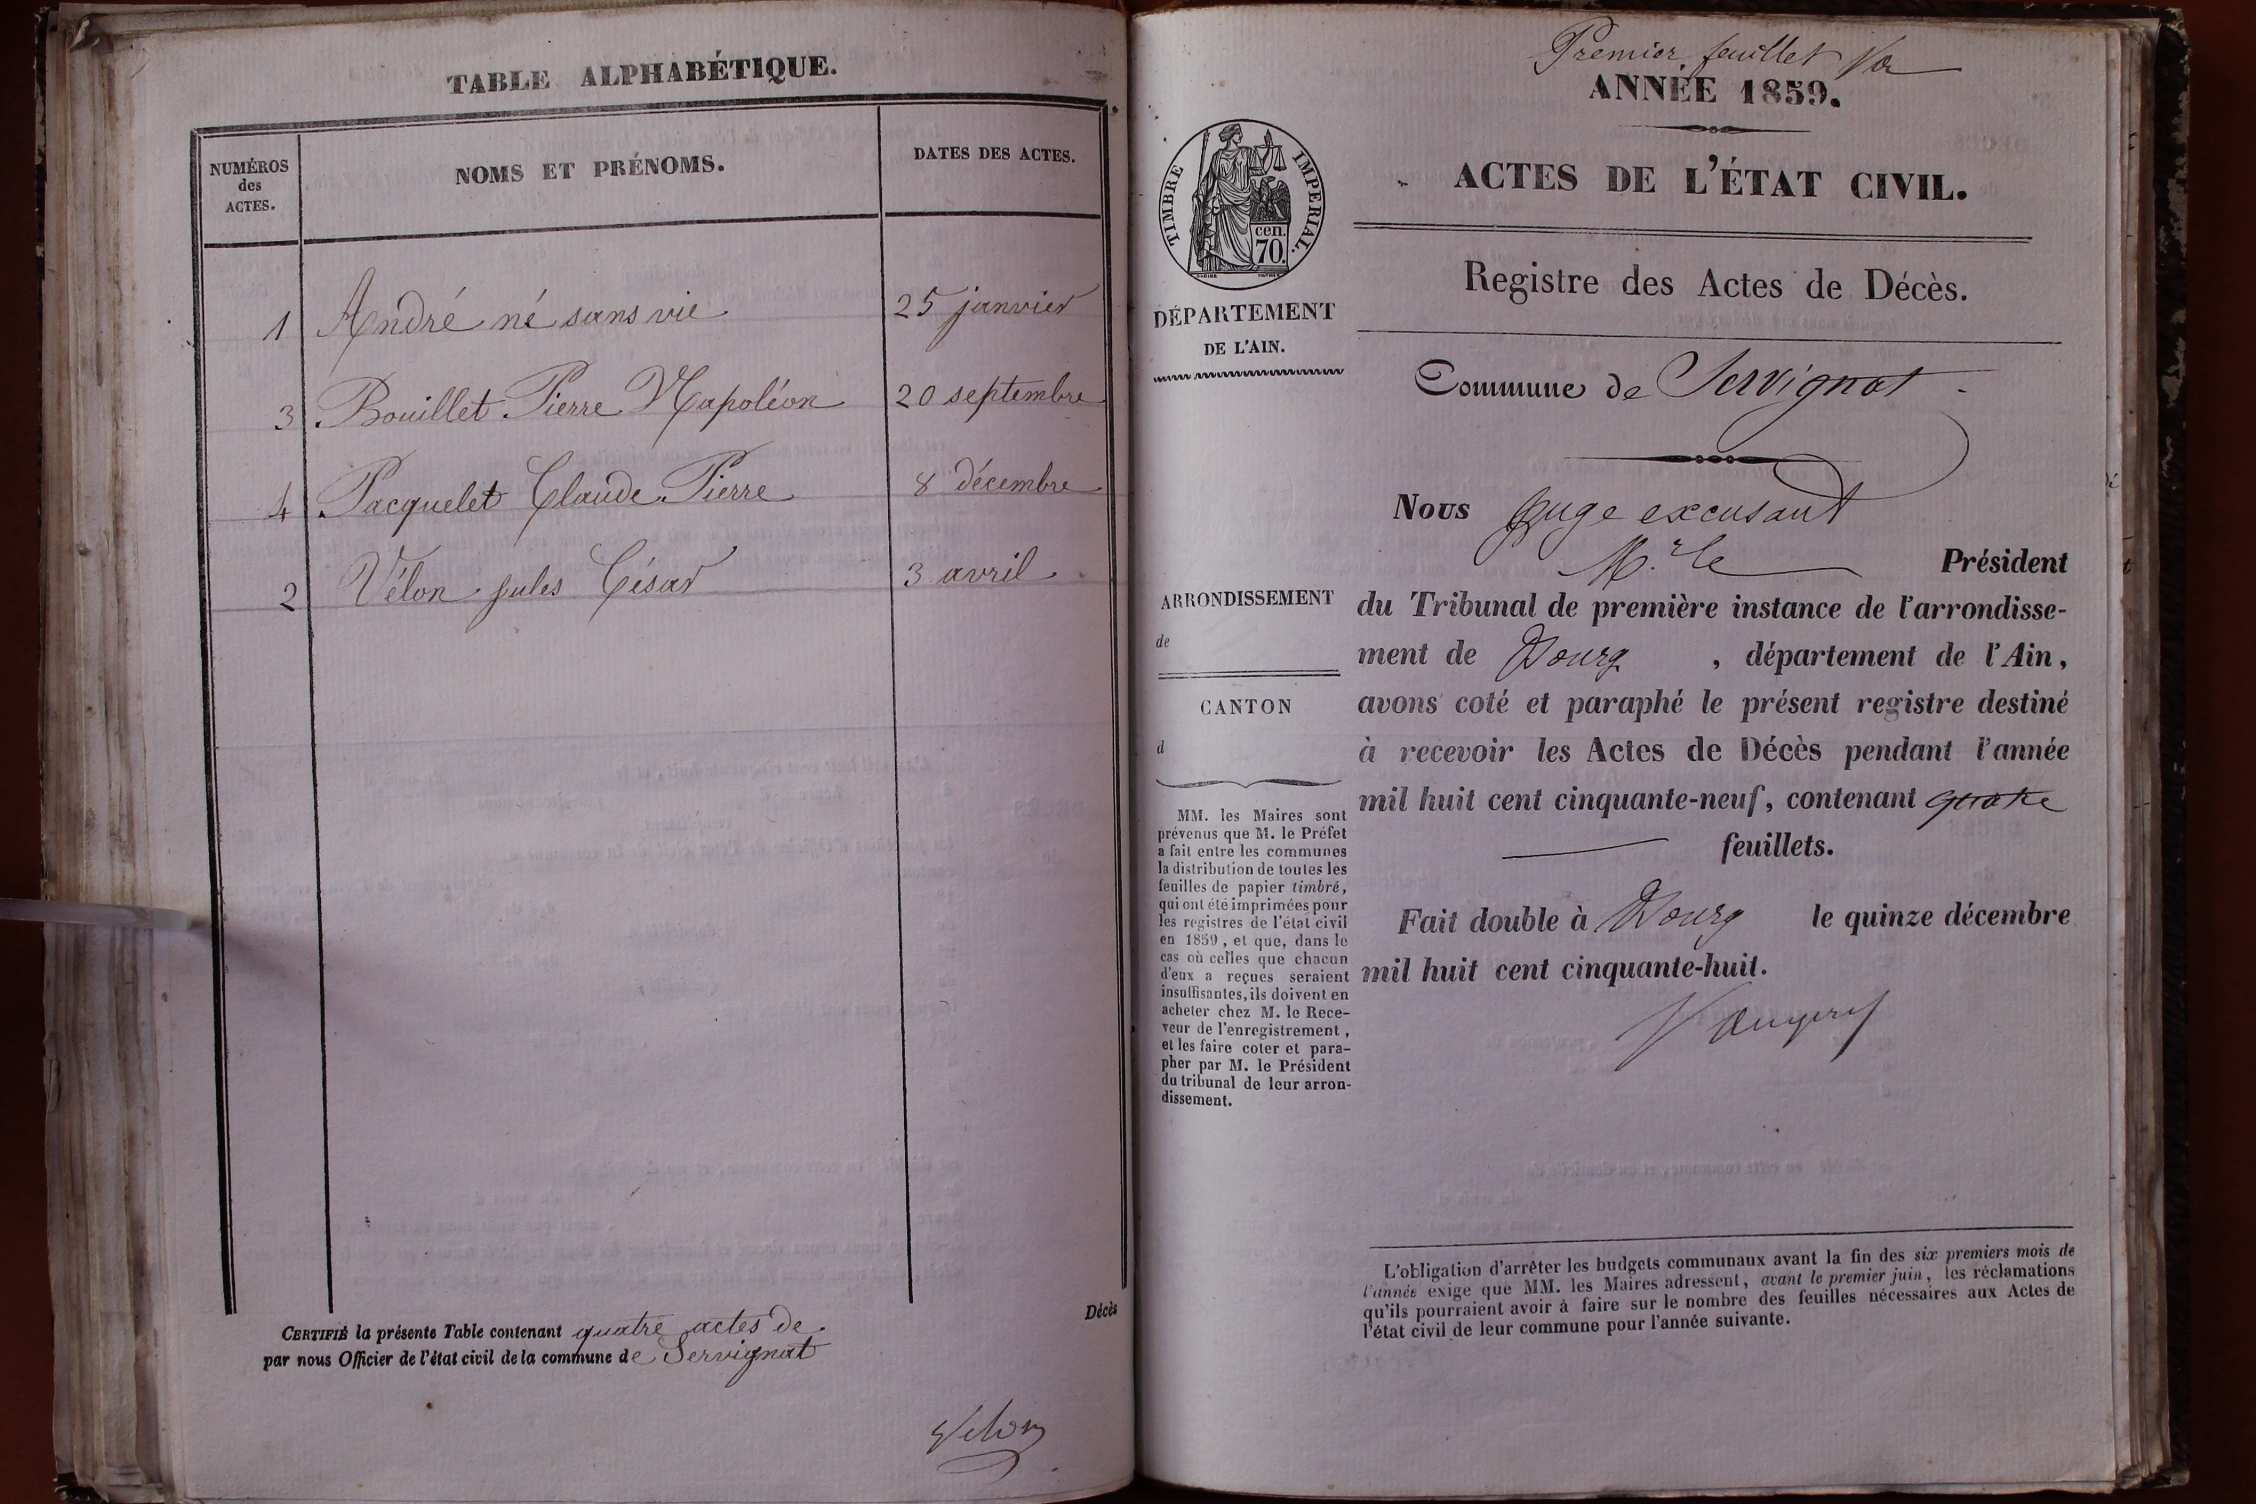 TABLE ALPHABÉTIQUE.
NUMÉROS
des
ACTES.
NOMS ET PRÉNOMS.
DATES DES ACTES.
1 André né sans vie 25 janvier
3 Bouillet Pierre Napoléon 20 septembre
4 Pacquelet Claude Pierre 8 décembre
2 Vélon jules César 3 avril
Décès
CERTIFIÉ la présente Table contenant quatre actes de
par nous Officier de l'état civil de la commune de Servignat
Velon
Premier feuillet
ANNÉE 1859.
TIMBRE IMPERIAL.
cen.
70.
ACTES DE L'ÉTAT CIVIL.
Registre des Actes de Décès.
DÉPARTEMENT
DE L'AIN.
Commune de Servignat
Nous juge excusant
M.r le Président
du Tribunal de première instance de l'arrondisse-
ment de Bourg, département de l'Ain,
avons coté et paraphé le présent registre destiné
à recevoir les Actes de Décès pendant l'année
mil huit cent cinquante-neuf, contenant quatre
feuillets.
Fait double à Bourg le quinze décembre
mil huit cent cinquante-huit.
ARRONDISSEMENT
de
CANTON
d
MM. les Maires sont
prévenus que M. le Préfet
a fait entre les communes
la distribution de toutes les
feuilles de papier timbré,
qui ont été imprimées pour
les registres de l'état civil
en 1859, et que, dans le
cas où celles que chacun
d'eux a reçues seraient
insuffisantes, ils doivent en
acheter chez M. le Rece-
veur de l'enregistrement,
et les faire coter et para-
pher par M. le Président
du tribunal de leur arron-
dissement.
L'obligation d'arrêter les budgets communaux avant la fin des six premiers mois de
l'année exige que MM. les Maires adressent, avant le premier juin, les réclamations
qu'ils pourraient avoir à faire sur le nombre des feuilles nécessaires aux Actes de
l'état civil de leur commune pour l'année suivante.